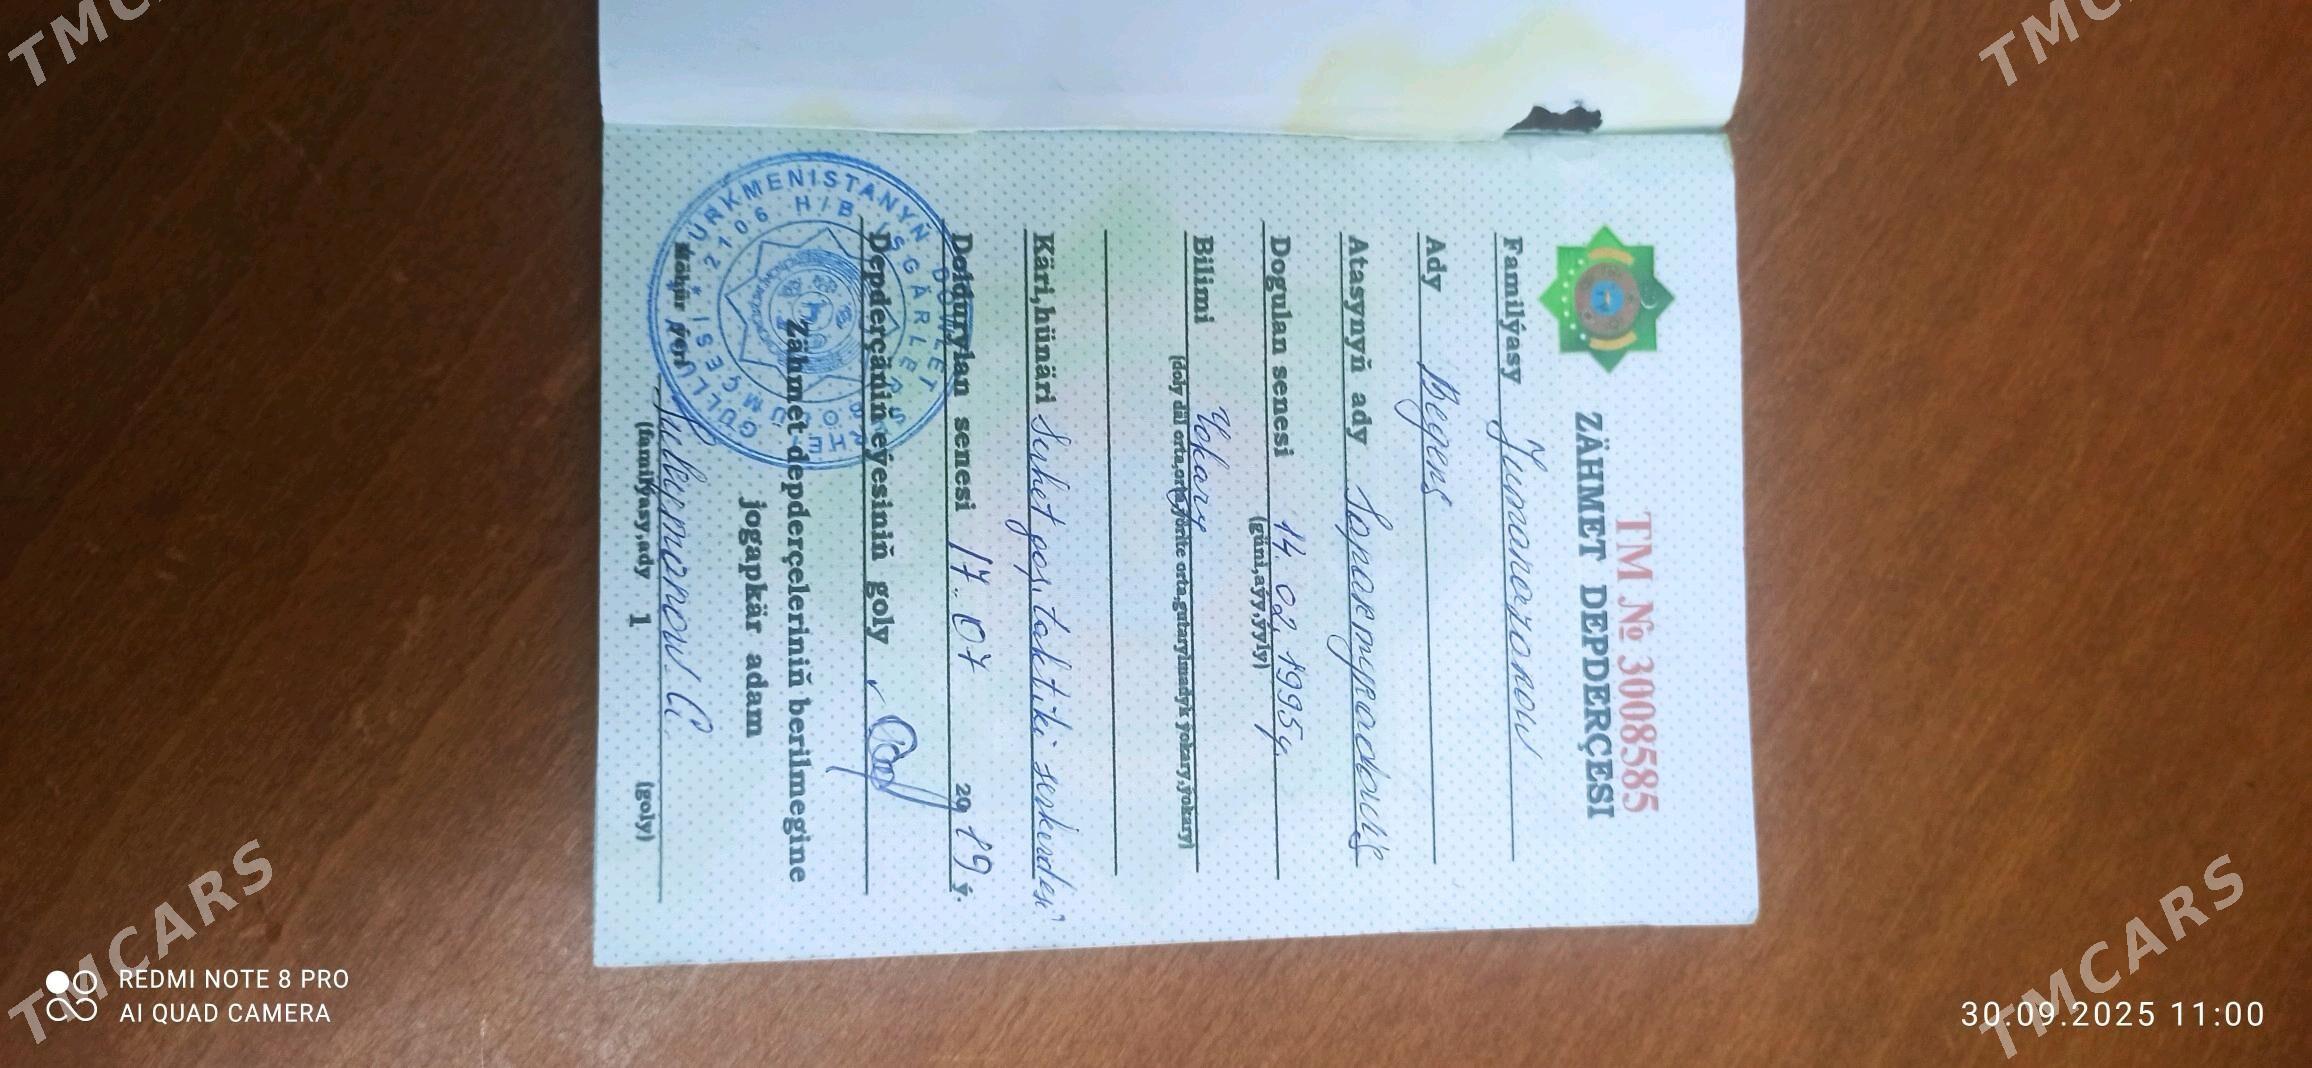 TM № 3008585
ZÄHMET DEPDERÇESI
Familýasy Jumanazarow
Ady Begenç
Atasynyň ady Soparmyradowiç
Dogulan senesi 14.02.1995ý
(güni,aýy,ýyly)
Bilimi Ýokary
(doly däl orta,orta,ýörite orta,gutarylmadyk ýokary,ýokary)
Käri,hünäri Suhet goş. taktiki serkerdesi
Doldurylan senesi 17.07 2019 ý.
Depderçäniň eýesiniň goly
Zähmet depderçeleriniň berilmegine
jogapkär adam
Möhür ýeri
(familýasy,ady (goly)
1
TÜRKMENISTANYŇ DÖWLET
GULLUGY
2106 H/B
TMCARS
TMCARS
TMCARS
TMCARS
REDMI NOTE 8 PRO
AI QUAD CAMERA
30.09.2025 11:00